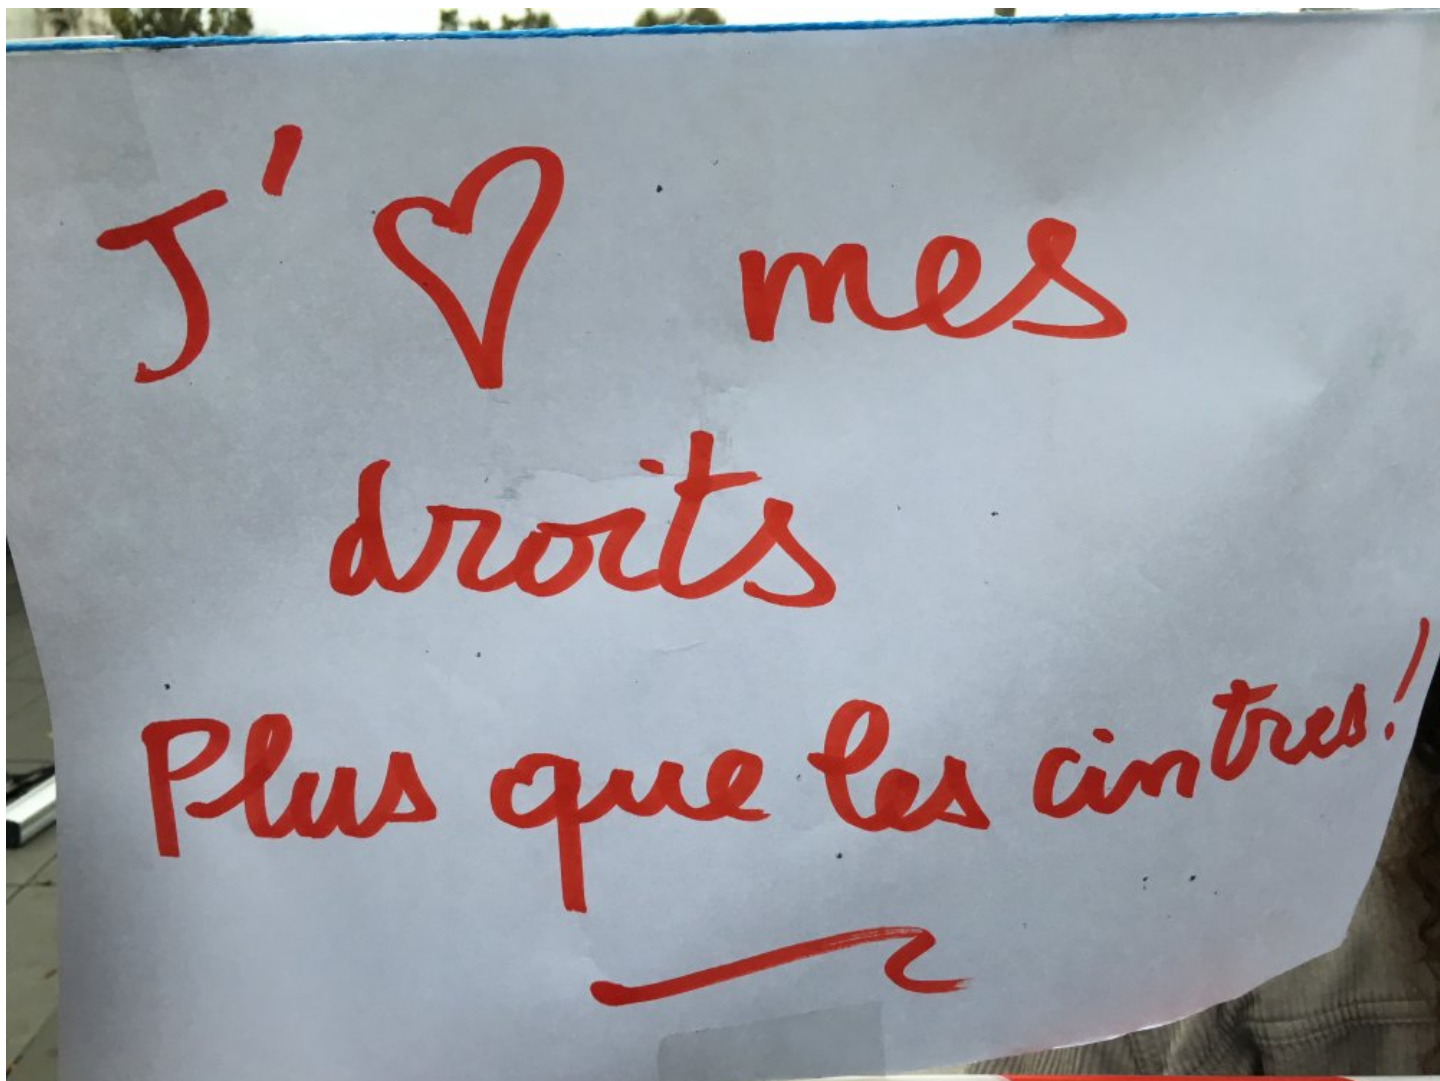 J'♡ mes
droits
Plus que les cintres!